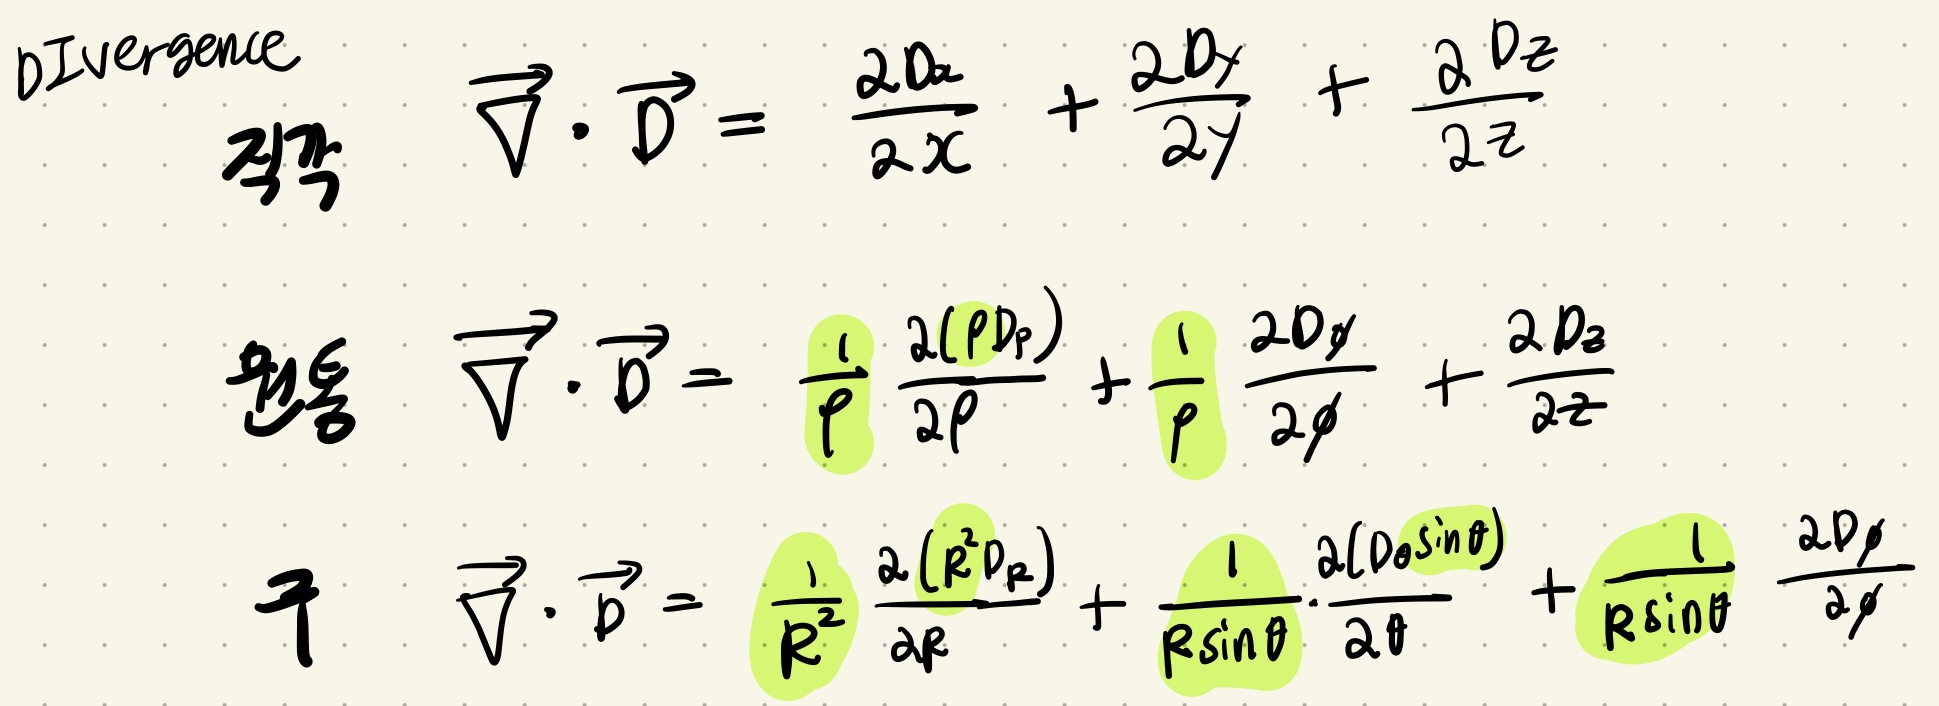 DIvergence
직각 ∇⃗ · D⃗ = ∂Dx/∂x + ∂Dy/∂y + ∂Dz/∂z
원통 ∇⃗ · D⃗ = 1/ρ ∂(ρDρ)/∂ρ + 1/ρ ∂Dφ/∂φ + ∂Dz/∂z
구 ∇⃗ · D⃗ = 1/R² ∂(R²D_R)/∂R + 1/(R sinθ) · ∂(Dθ sinθ)/∂θ + 1/(R sinθ) ∂Dφ/∂φ